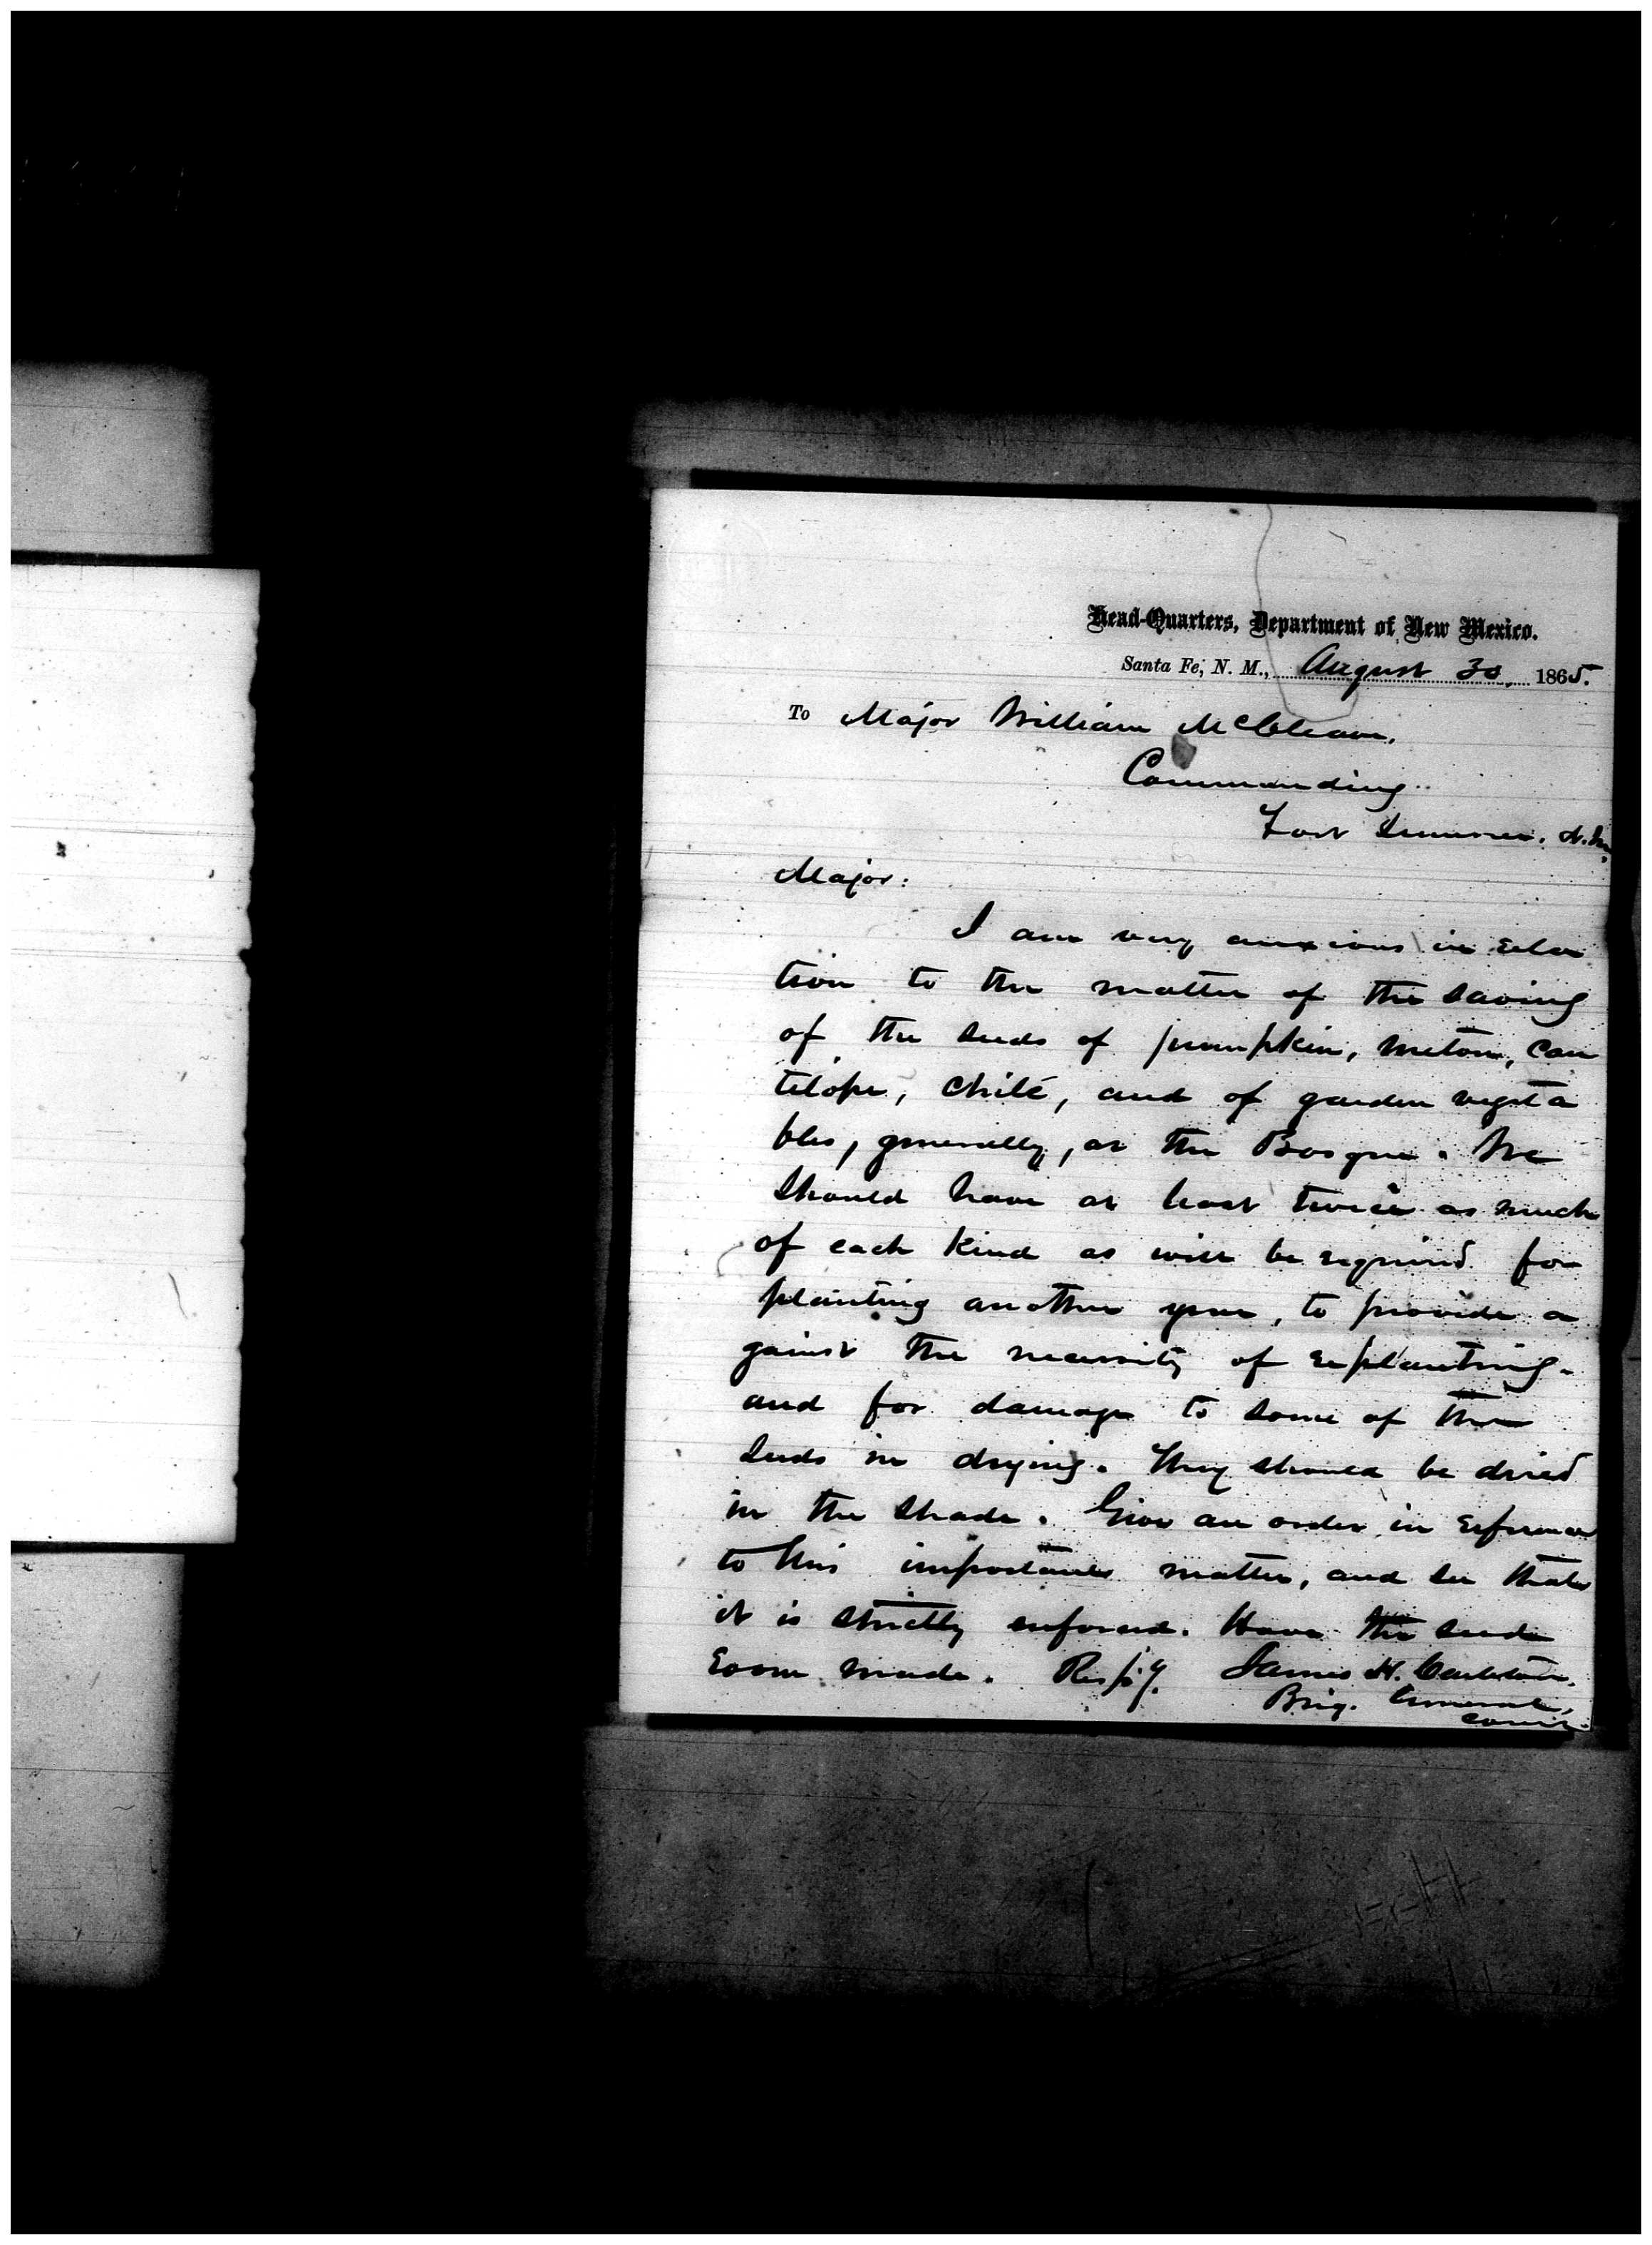 Head-Quarters, Department of New Mexico.
Santa Fe, N. M., August 30, 1865.
To Major William McCleave,
Commanding
Fort Sumner, N.M.
Major:
I am very anxious in rela
tion to the matter of the saving
of the seeds of pumpkin, melon, can
telope, chilé, and of garden vegeta
bles, generally, at the Bosque. We
should have at least twice as much
of each kind as will be required for
planting another year, to provide a
gainst the necessity of replanting-
and for damage to some of the
seeds in drying. They should be dried
in the shade. Give an order in reference
to this important matter, and see that
it is strictly enforced. Have the seed
room made. Resp'y. James H. Carleton,
Brig. General,
Com'g.